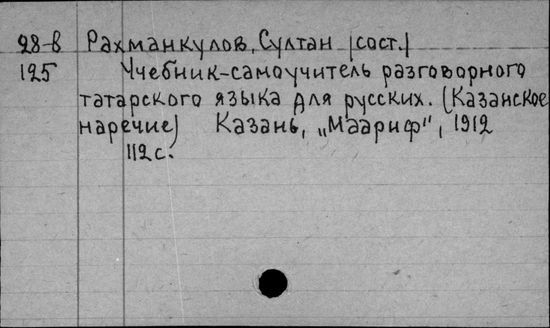 28-в Рахманкулов, Султан (сост.)
125 Учебник-самоучитель разговорного
татарского языка для русских. (Казанское
наречие) Казань, „Маариф", 1912
112 с.